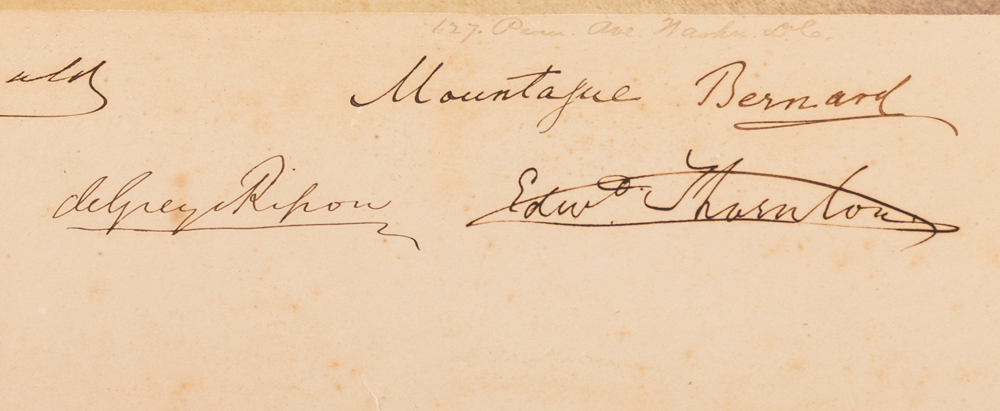 127. Penn. Ave Washn D.C.
ald Mountague Bernard
de Grey & Ripon Edwd. Thornton